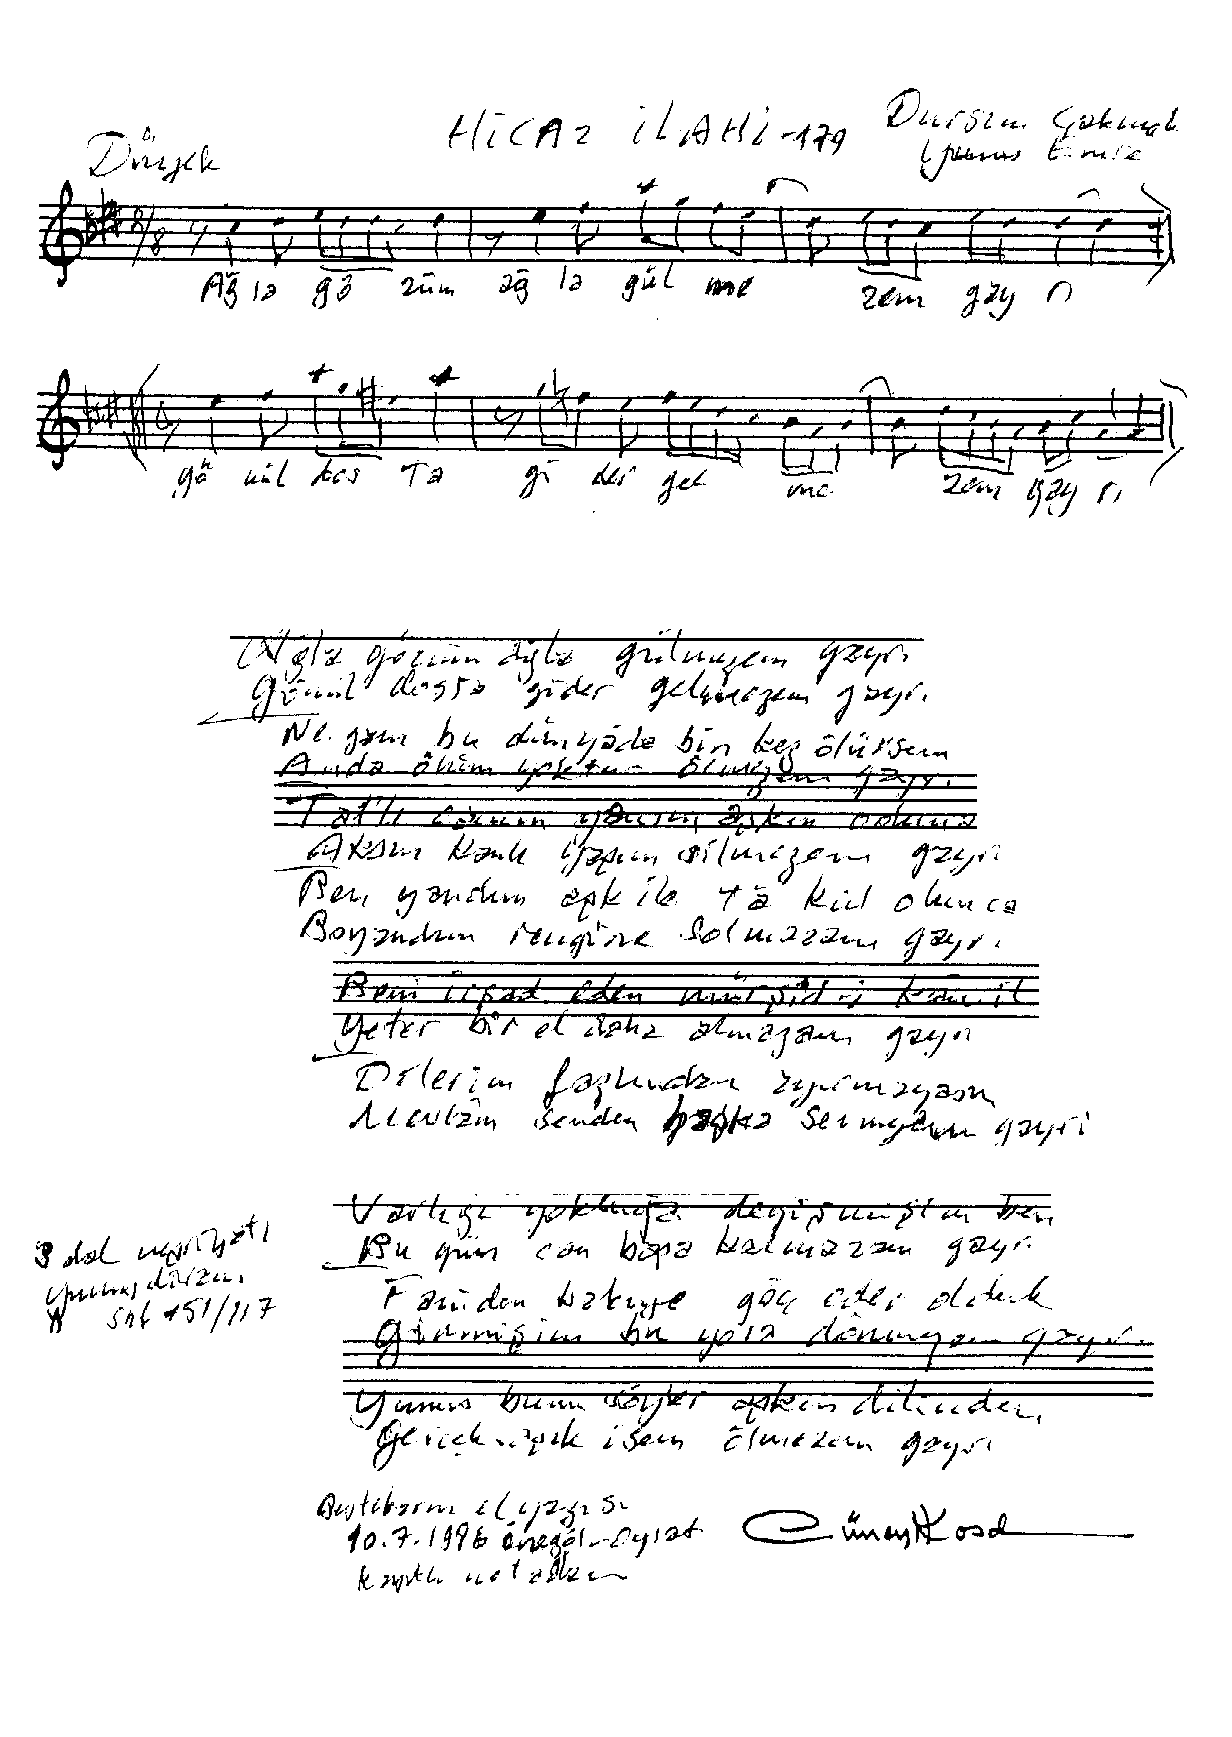 HİCAZ İLAHİ - 179
Dursun Çakmak
Yunus Emre
Düyek
9/8
Ağ la gö züm ağ la gül me zem gay ri
gö nül dos ta gi der gel me zem gay ri
Ağla gözüm ağla gülmezem gayri
Gönül dosta gider gelmezem gayri
Ne gam bu dünyada bin kez ölürsem
Anda ölüm yoktur ölmezem gayri
Tatlı canım yansın aşkın oduna
Aksın kanlı yaşım silmezem gayri
Ben yandım aşk ile tâ kül olunca
Boyandım rengine solmazam gayri
Beni irşad eden mürşid-i kâmil
Yeter bir el daha almazam gayri
Dilerim fazlından ayırmayasın
Mevlâm senden başka sevmezem gayri
Varlığı yokluğa değişmişim ben
Bu gün can başa kalmazam gayri
Fâniden bakiye göç eder olduk
Girmişim bu yola dönmezem gayri
Yunus bunu söyler aşkın dilinden
Gerçek aşık isem ölmezem gayri
3 dal neşriyatı
yunus divanı
Shf 151/117
Bestekarın el yazısı
10.7.1996
kayıtlı notadan
Cüneyt Kosal